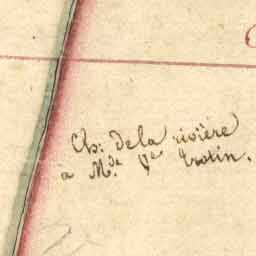 Ch: de la rivière
à Mde Ve Trotin.